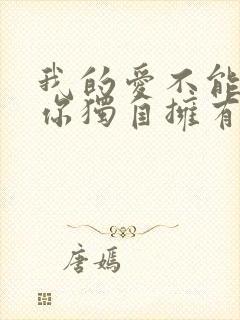 我的愛不能
你獨自擁有
唐嫣